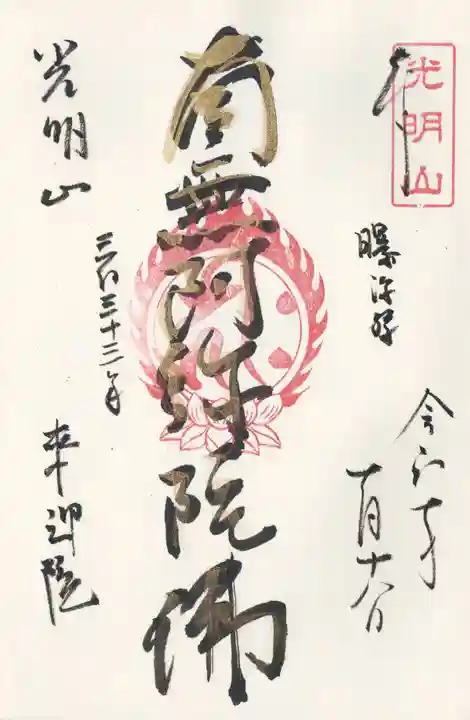 光明山
奉
令和元年
十一月十八日
南無阿弥陀佛
光明山
三百三十三年
来迎院